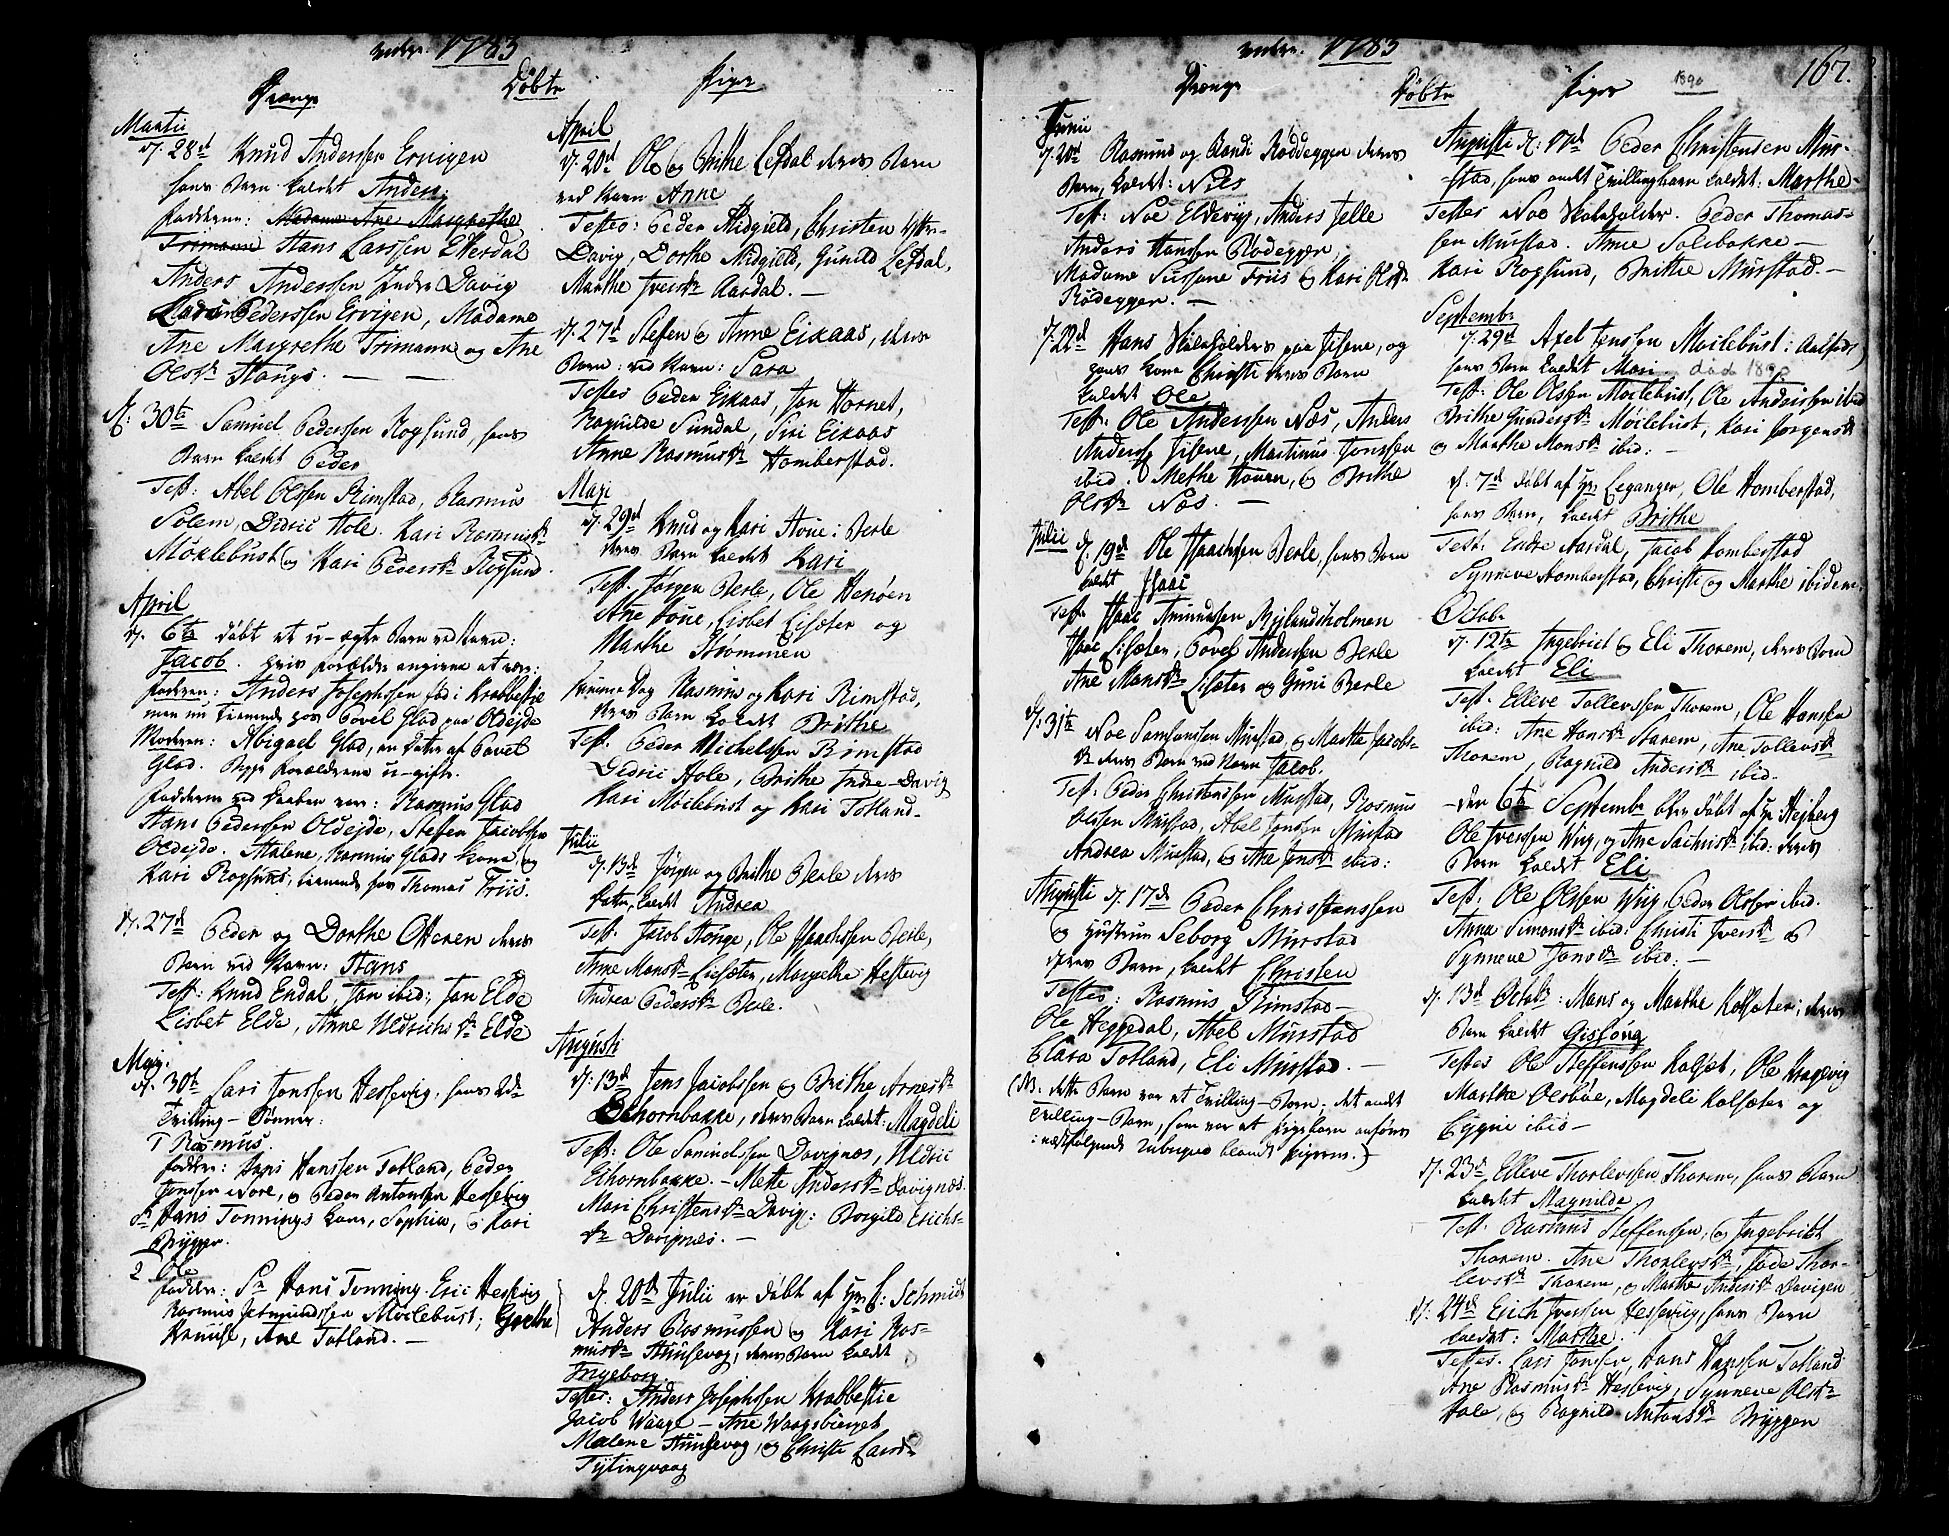 1783
Drenge Døbte Piger
Martii
d. 28de Knud Anderssen Ervigen
hans Barn kaldet Anders.
Fadderne: Madame Ane Margrethe
Frimann Hans Larssen Ekerdal
Anders Anderssen Indre Davig
Pederssen Ervigen, Madame
Ane Margrethe Frimann og Ane
Olsdr Haugs.
d. 30te Samuel Pederssen Rogsund, hans
Barn kaldet Peder
Test: Abel Olssen Rimstad, Rasmus
Solem, Didric Hole, Kari Rasmusdr
Møklebust og Kari Pedersdr Rogsund.
April
d. 6te døbt et u-ægte Barn ved Navn:
Jacob. hvis Forældre angivne at være:
Faderen: Anders Josephsen fød i Krabbestie
men nu tienende hos Povel Glad paa Oldejde
Moderen: Abigael Glad, en Datter af Povel
Glad. Begge Forældrene u-gifte.
Fadderne ved Daaben vare: Rasmus Glad
Hans Pederssen Oldejde, Steffen Jacobssen
Oldejde. Malene, Rasmus Glads Kone, og
Kari Rogsund, tienende hos Thomas Friis.
d. 27de Peder og Dorthe Otteren deres
Barn ved Navn: Hans
Test: Knud Endal, Jan ibid:, Jan Elde
Lisbet Elde, Anne Uldrichsdr Elde
Maji
d. 30te Lars Jonssen Hessevig, hans 2de
Tvilling-Sønner:
1 Rasmus.
Faddere: Hans Hanssen Totland, Peder
Jenssen Nore, og Peder Antonssen Hessevig
Sr Hans Tonnings Kone, Sophia, og Kari
Brygge.
2 Ole
Faddere: Sr Hans Tonning, Eric Hessevig
Rasmus Jetmundssen Møclebust; Grethe
Knutse, Ane Totland.
April
d. 20de Ole og Brithe Lefdal deres Barn
ved Navn Anne
Testes: Peder Midgield, Christen Ytre-
Davig, Dorthe Midgield, Gunild Lefdal,
Marthe Iversdr Aardal.
d. 27de Steffen og Anne Eikaas, deres
Barn: ved Navn: Sara
Testes Peder Eikaas, Jan Hornet,
Ragnilde Sundal, Siri Eikaas
Anne Rasmusdr Homberstad.
Maji
d. 29de Knud og Kari Houe: Berle
deres Barn kaldet Kari
Test. Jørgen Berle, Ole Henøen
Ane Houe, Lisbet Lisæter og
Marthe Strømmen
Samme Dag Rasmus og Kari Rimstad,
deres Barn kaldet Brithe
Test. Peder Michelssen Rimstad
Didric Hole, Brithe Indre-Davig
Kari Møclebust og Kari Totland.
Julii
d. 13de Jørgen og Brithe Berle deres
Datter, kaldet Andrea
Test. Jacob Hauge, Ole Isachssen Berle,
Anne Mansdr Lisæter, Margrethe Hessevig
Andrea Pedersdr Berle.
Augusti
d. 13de Jens Jacobssen og Brithe Arnesdr
Echornbakke, deres Barn kaldet: Magdeli
Test: Ole Samuelssen Davignæs, Uldric
Eichornbakke. - Mette Andersdr Davignæs.
Mari Christensdr Davig: Borgild Erichs-
dr Davignæs.
d. 20de Julii er døbt af Hr. C: Schmidt
Anders Rasmussen og Kari Ras-
musdr Huusevog, deres Barn kaldet
Ingeborg.
Testes: Anders Josephsen Krabbestie
Jacob Waage - Ane Waagsbierget
Malene Huusevog, og Christi Larsdr
Tytingvaag
1783 167.
Drenge Døbte Piger 1890
Junii
d. 20de Rasmus og Randi Røddeggen deres
Barn, kaldet: Nils
Test: Noe Eldevig, Anders Telle
Anders Hansen Rødeggen
Madame Sussane Friis og Kari Olsdr
Rødeggen.
d. 22de Hans paa Issene, og
hans Kone Christi deres Barn
kaldet Ole
Test: Ole Anderssen Næs, Anders
Anderss Issene, Martinus Jonssen
ibid. Methe Houen, og Brithe
Olsdr Næs.
Julii d. 19de Ole Isaachsen Berle, hans Barn
kaldet Isaac
Test. Isaac Amundssen Rylandsholmen
Isaac Lisæter, Povel Andersen Berle
Ane Mansdr Lisæter og Guni Berle
d. 31te Noe Samsonsen Murstad, og Marthe Jacobs-
dr deres Barn ved Navn Jacob.
Test: Peder Christenssen Murstad, Rasmus
Olssen Murstad, Abel Jenssen Murstad
Andrea Murstad, og Ane Jensdr ibid:
Augusti d. 17de Peder Christenssen
og Hustrue Seborg Murstad
deres Barn, kaldet Christen
Testes: Rasmus Rimstad
Ole Heggedal, Abel Murstad
Clara Totland, Eli Murstad.
(NB. dette Barn var et Tvilling-Barn; det andet
Tvilling-Barn, som var et Pigebarn anføres
i næstfølgende Rubrique blandt Pigerne.)
Augusti d: 17de Peder Christensen Mur-
stad, hans andet Tvillingbarn kaldet: Marthe
Testes Noe. Peder Thomas-
sen Murstad. Anne Solebakke
Kari Rogsund, Brithe Murstad.
Septembr
d. 29de Axel Jenssen Møclebust: Aalfod
hans Barn kaldet Mari død 1890
Test. Ole Olssen Møclebust, Ole Anderssen ibid
Brithe Gundersdr Møclebust, Kari Jørgensdr
og Marthe Monsdr ibid:
d. 7de døbt af Hr Leganger, Ole Homberstad,
hans Barn, kaldet Brithe
Test. Endre Aardal, Jacob Homberstad
Synneve Homberstad, Christi og Marthe ibidem.
Octobr
d. 12te Ingebrict og Eli Thorem, deres Barn
kaldet Eli
Test. Elleve Tollevssen Thorem, Ole Hanssen
ibid: Ane Hansdr Starem, Ane Tollevsdr
Thorem, Ragnild Andersdr ibid.
den 6te Septembr blev døbt af Hr Hejberg
Ole Iverssen Wiig, og Ane ibid: deres
Barn kaldet Eli
Test. Ole Olssen Wiig, Peder Olssen ibid.
Anna Simonsdr ibid. Christi Iversdr og
Synneve Jonsdr ibid:
d. 13de Octobr: Mans og Marthe Kolsæter; deres
Barn kaldet Gisløug
Testes Ole Steffenssen Kolsæt, Ole Kragevig
Marthe Olsbøe, Magdeli Kolsæter og
Eggni ibid
d. 23de Elleve Thorlevssen Thorem, hans Barn
kaldet Magnilde
Test. Rasmus Steffenssen, og Ingebricht
Thorem. Ane Thorlevsdr, Jøde Thor-
levsdr Thorem, og Marthe Andersdr Davigen
d. 24de Erich Iverssen Hessevig, hans Barn
kaldet: Marthe.
Testes. Lars Jonssen, Hans Hanssen Totland
Ane Rasmusdr Hessevig, Synneve Olsdr
Hole, og Ragnild Antonsdr Bryggen